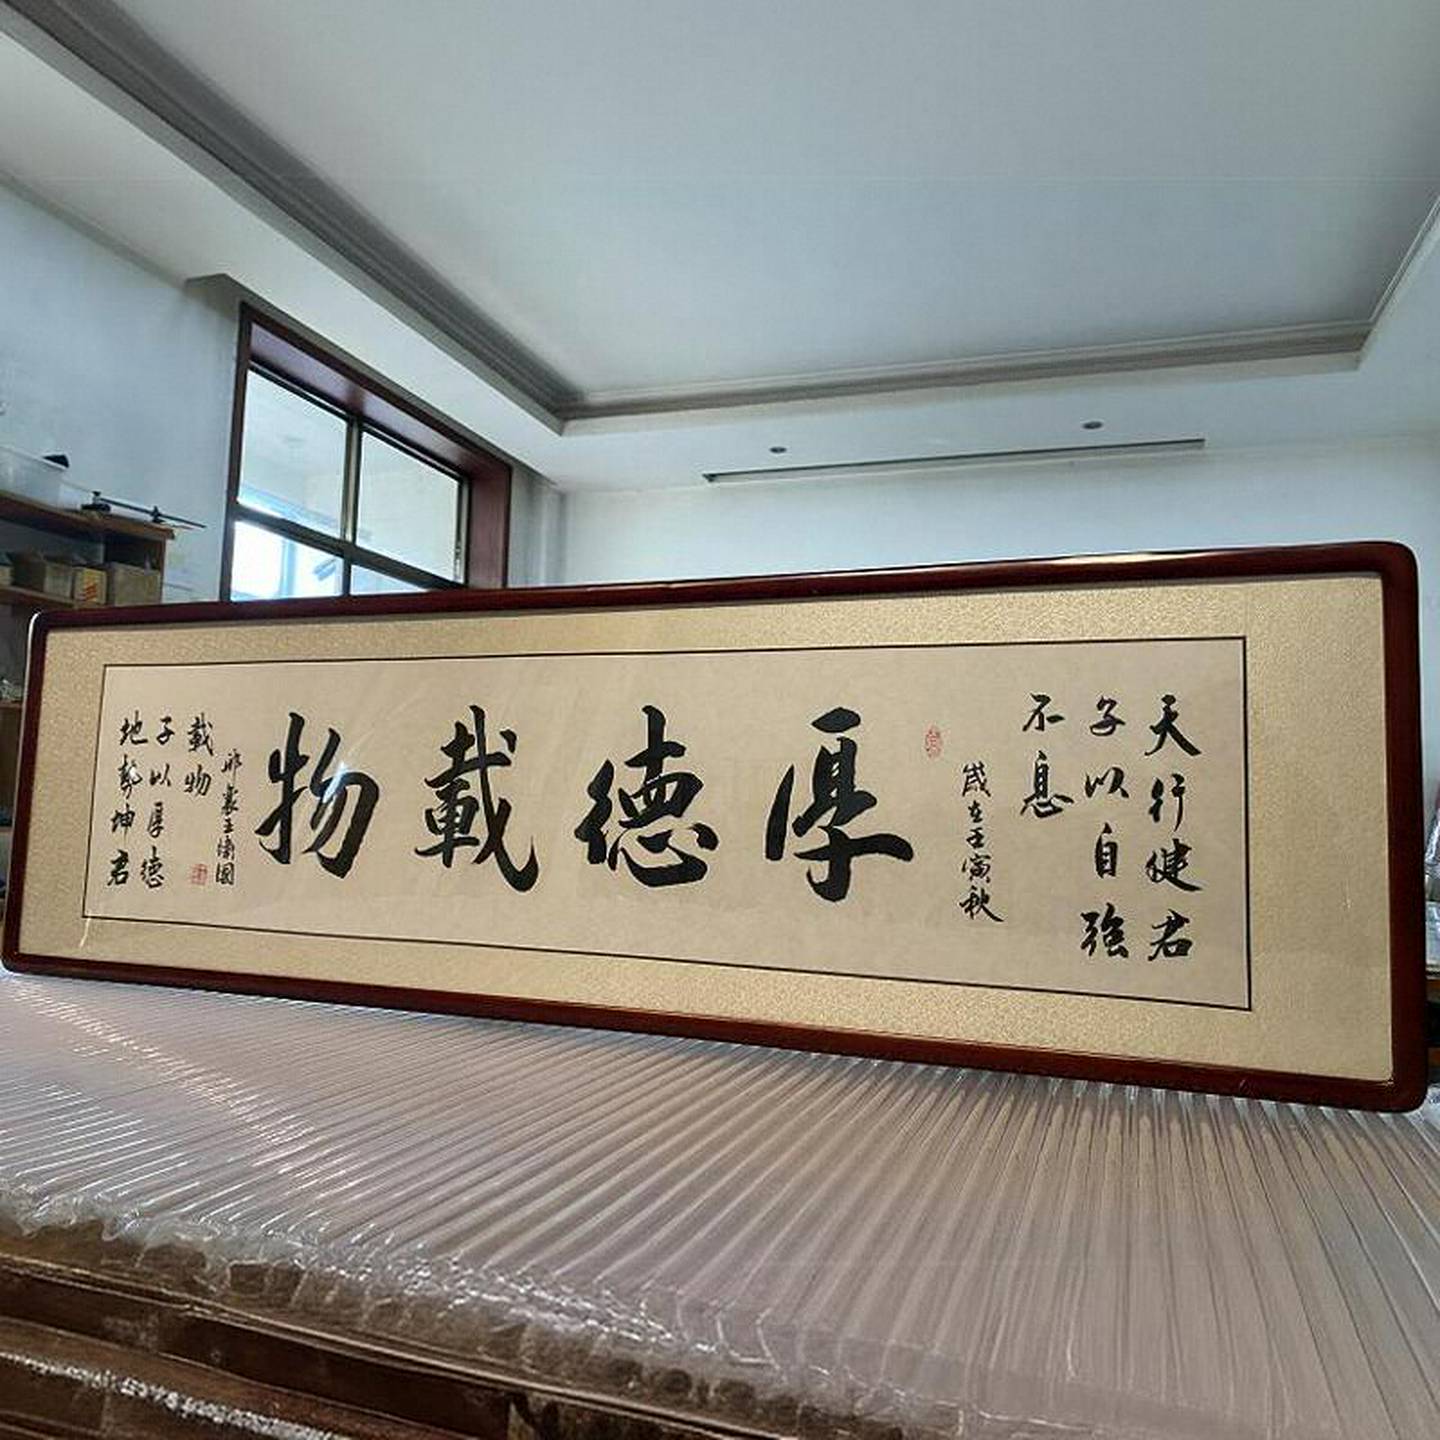 天行健君
子以自強
不息
歲在壬寅秋
厚德載物
地勢坤君
子以厚德
載物
邢襄王國